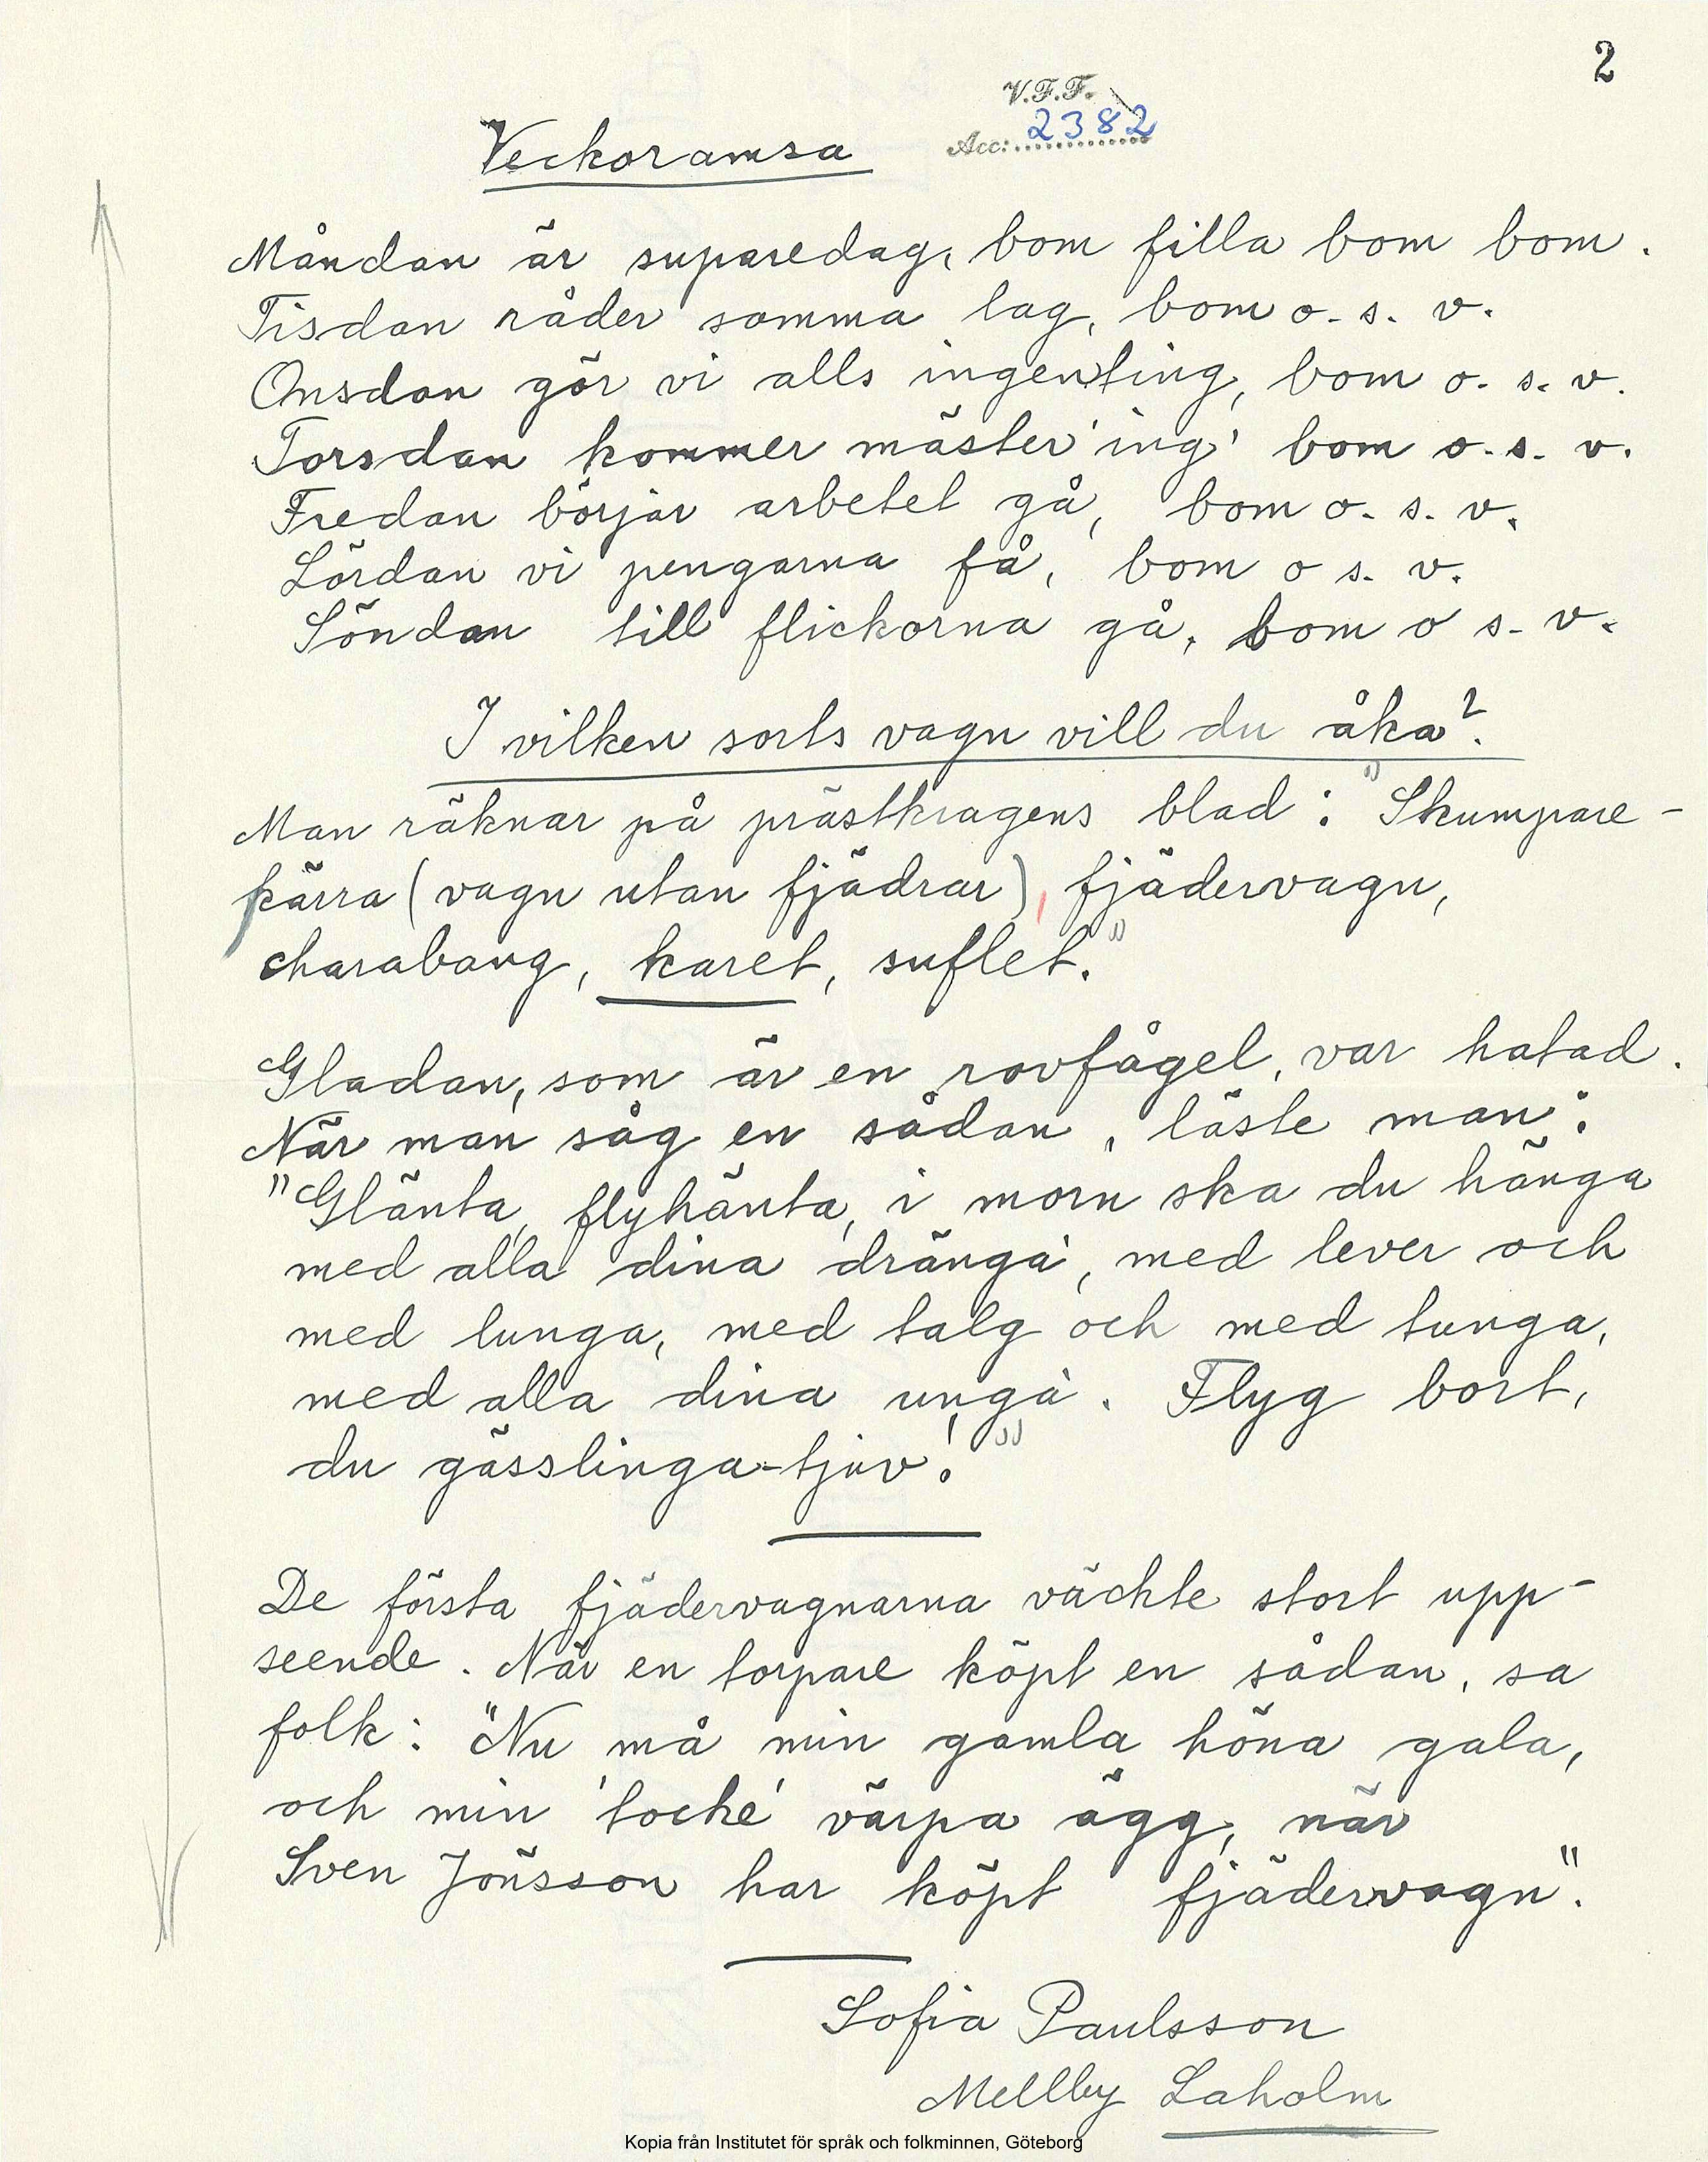 2
V.F.F.
Acc: 2382
Veckoramsa
Måndan är suparedag, bom filla bom bom.
Tisdan råder samma lag, bom o. s. v.
Onsdan gör vi alls ingenting, bom o. s. v.
Torsdan kommer mäster 'ing' bom o. s. v.
Fredan börjar arbetet gå, bom o. s. v.
Lördan vi pengarna få, bom o s. v.
Söndan till flickorna gå, bom o s. v.
I vilken sorts vagn vill du åka?
Man räknar på prästkragens blad: "Skumpare-
kärra (vagn utan fjädrar), fjädervagn,
charabang, karet, suflet."
Gladan, som är en rovfågel, var hatad.
När man såg en sådan, läste man:
"Glänta, flyhänta, i morn ska du hänga
med alla dina dränga', med lever och
med lunga, med talg och med tunga,
med alla dina unga'. Flyg bort,
du gässlinga-tjuv!"
De första fjädervagnarna väckte stort upp-
seende. När en torpare köpt en sådan, sa
folk: "Nu må min gamla höna gala,
och min 'tocke' värpa ägg, när
Sven Jönsson har köpt fjädervagn".
Sofia Paulsson
Mellby Laholm
Kopia från Institutet för språk och folkminnen, Göteborg